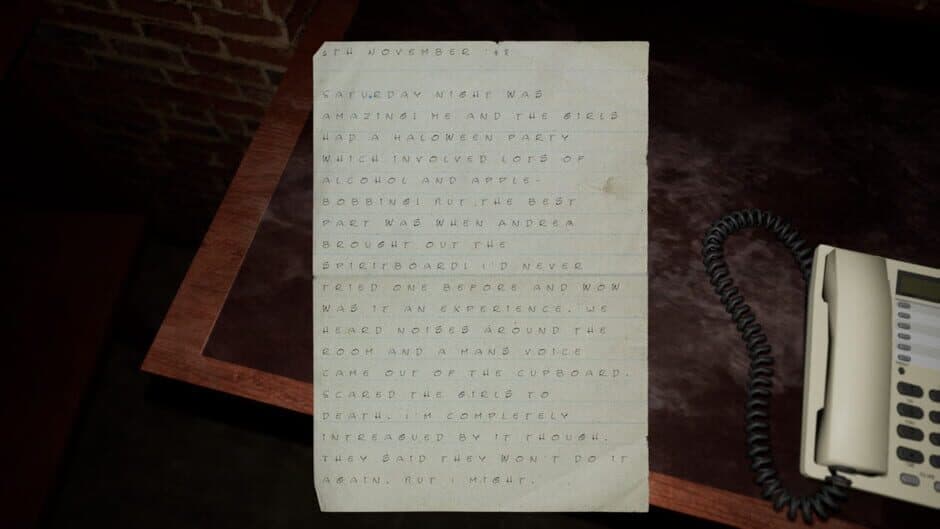 6TH NOVEMBER '98
SATURDAY NIGHT WAS
AMAZING! ME AND THE GIRLS
HAD A HALOWEEN PARTY
WHICH INVOLVED LOTS OF
ALCOHOL AND APPLE-
BOBBING! BUT THE BEST
PART WAS WHEN ANDREA
BROUGHT OUT THE
SPIRITBOARD! I'D NEVER
TRIED ONE BEFORE AND WOW
WAS IT AN EXPERIENCE. WE
HEARD NOISES AROUND THE
ROOM AND A MANS VOICE
CAME OUT OF THE CUPBOARD.
SCARED THE GIRLS TO
DEATH. I'M COMPLETELY
INTREAGUED BY IT THOUGH.
THEY SAID THEY WON'T DO IT
AGAIN. BUT I MIGHT.